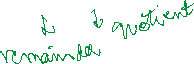 ↓ ↓ quotient
remainder